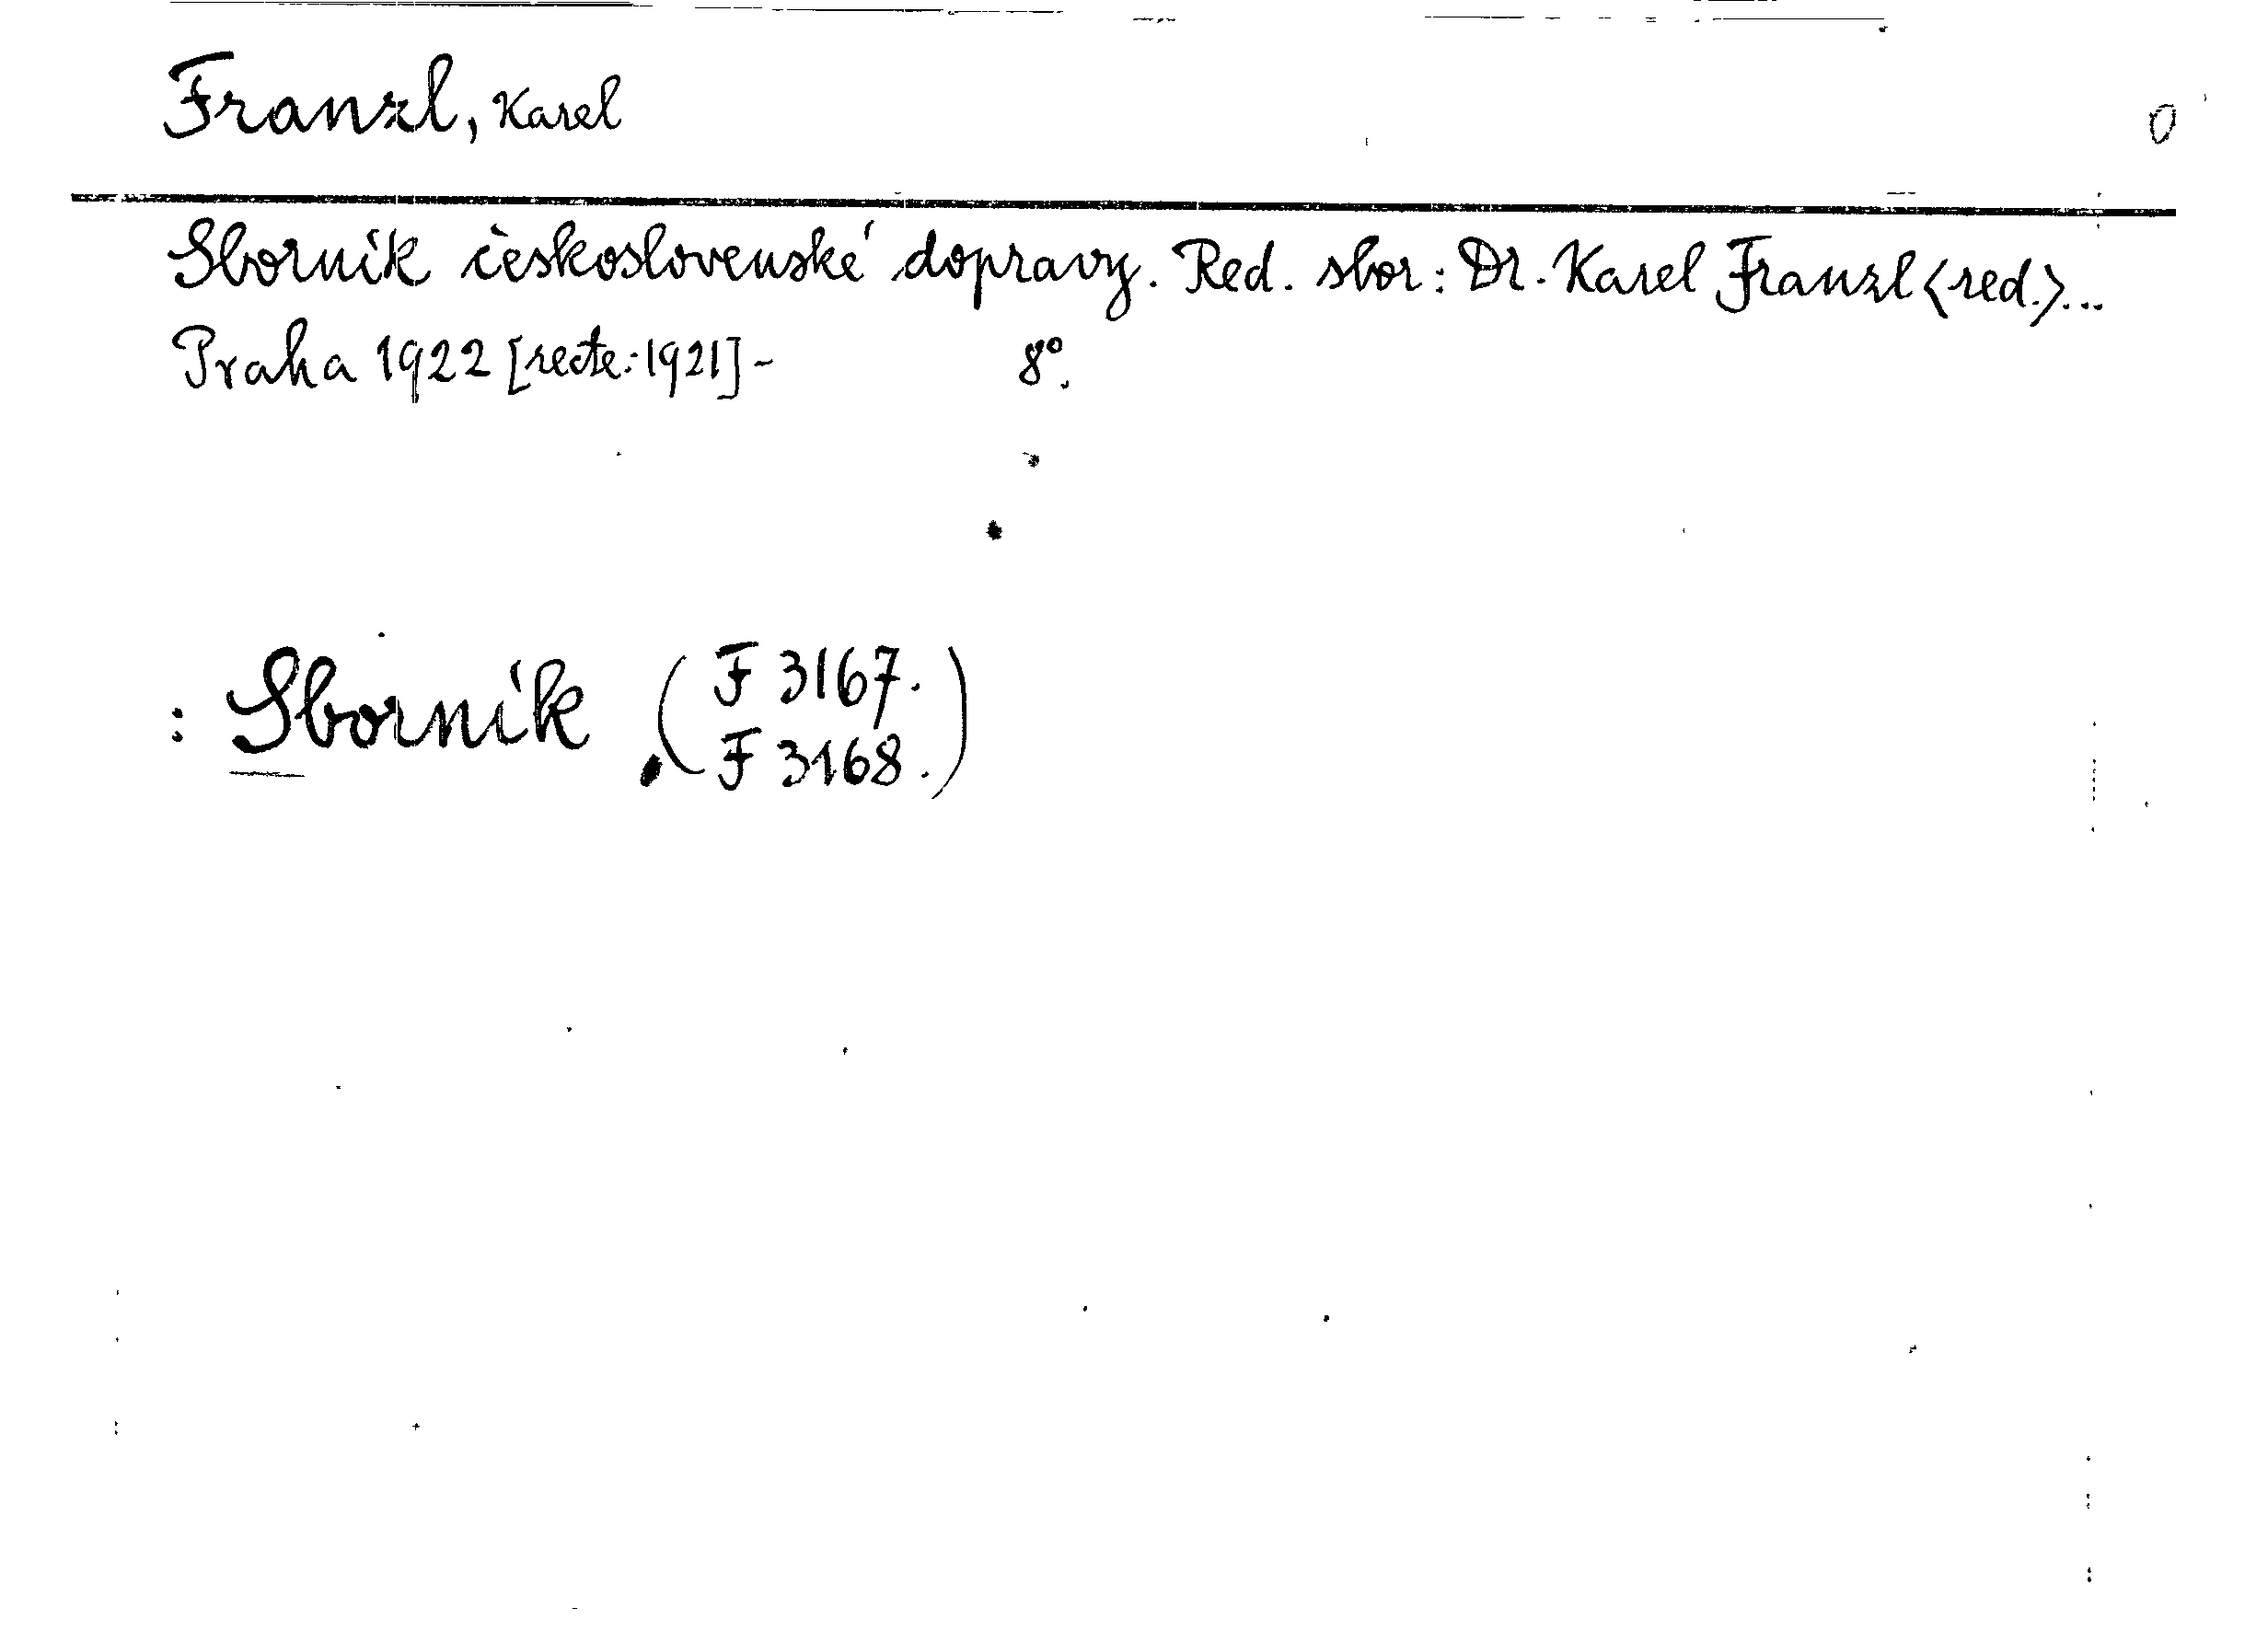 Franzl, Karel 0
Sborník československé dopravy. Red. sbor: Dr. Karel Franzl <red.>...
Praha 1922 [recte: 1921] - 8°.
: Sborník (F 3167.
F 3168.)